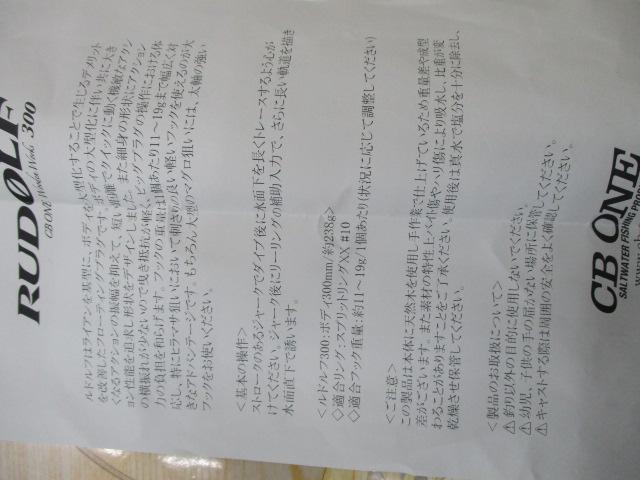 RUDOLF
CB ONE Wooden Works 300
ルドルフはライアンを基型に、ボディを大型化することで生じるデメリット
を改頼したフローティングプラグです。ボディの大型化に伴い更に大き
くなるアクションの振幅を抑えて、短い距離でクイックに動く機敏なアクシ
ョン性能を追求し形状をデザインしました。また細身の形状にアクション
の横振れが少ないので曳き抵抗が軽く、ビッグプラグの操作における体
力の負担を和らげます。フックの重量は1個あたり11〜19gまで幅広く対
応し、特にヒラマサ狙いにおいて刺さりの良い軽いフックを使えるのが大
きなアドバンテージです。もちろん大型のマグロ狙いには、太軸の強い
フックをお使いください。
<基本の操作>
ストロークのあるジャークでダイブ後に水面下を長くトレースするよう心が
けてください。ジャーク後にリーリングの補助入力で、さらに長い軌道を描き
水面直下で誘います。
<ルドルフ300:ボディ300mm/約238g>
◇適合リング:スプリットリングXX #10
◇適合フック重量:約11〜19g/1個あたり(状況に応じて調整してください)
<ご注意>
この製品は本体に天然木を使用し手作業で仕上げているため重量差や成型
差がございます。また素材の特性上バイト傷やハリ傷により吸水し、比重が変
わることがありますことをご了承ください。使用後は真水で塩分を十分に除去し、
乾燥させ保管してください。
<製品のお取扱について>
⚠釣り以外の目的に使用しないでください。
⚠幼児、子供の手の届かない場所に保管してください。
⚠キャストする際は周囲の安全をよく確認してください。
CB ONE
SALTWATER FISHING PRO